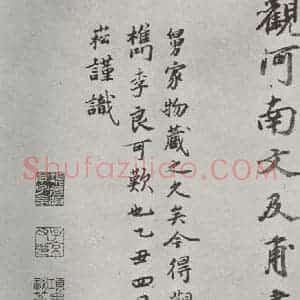 觀河南文及甫
舅家物藏之久矣今得觀
檇李良可歎也乙丑四月
崧謹識
Shufaziliao.COM